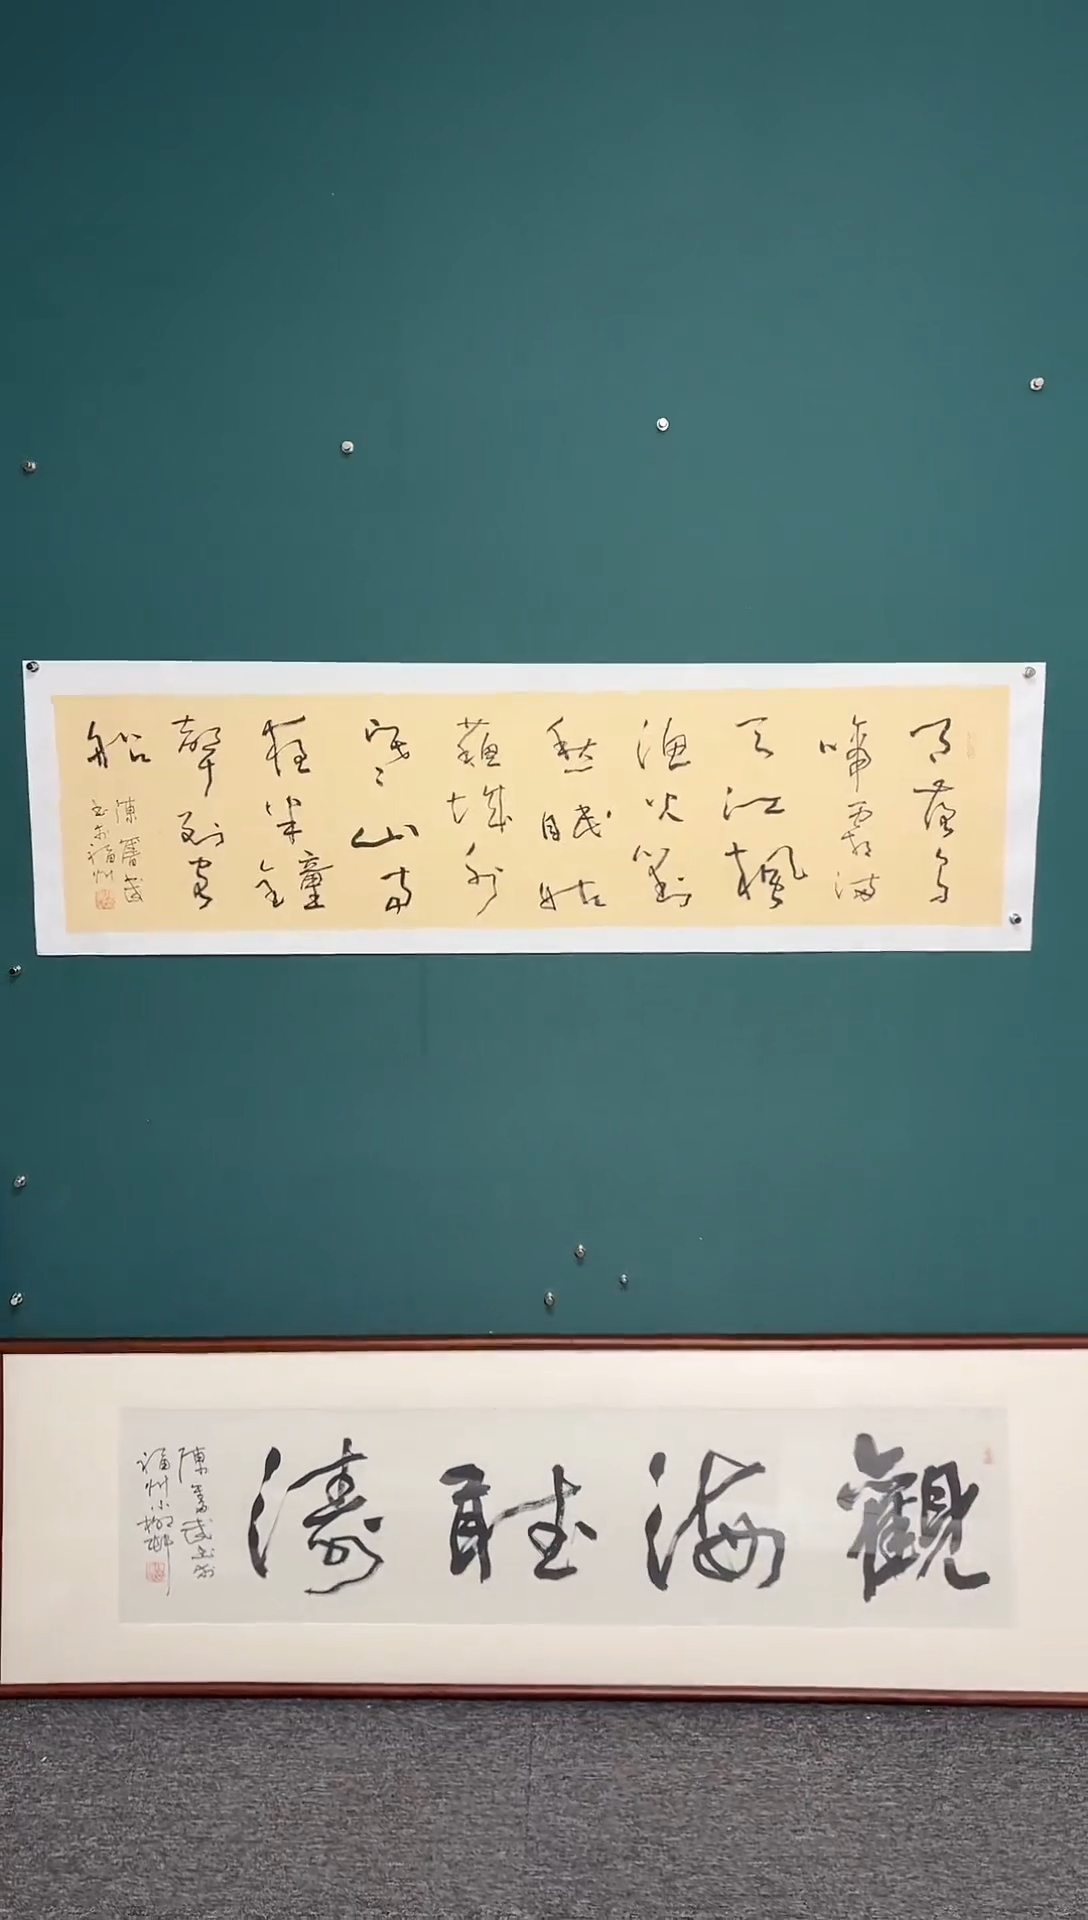 月落烏
啼霜滿
天江楓
漁火對
愁眠姑
蘇城外
寒山寺
夜半鐘
聲到客
船
陳奮武
書於福州
觀海聽濤
陳奮武書於
福州小柳邨